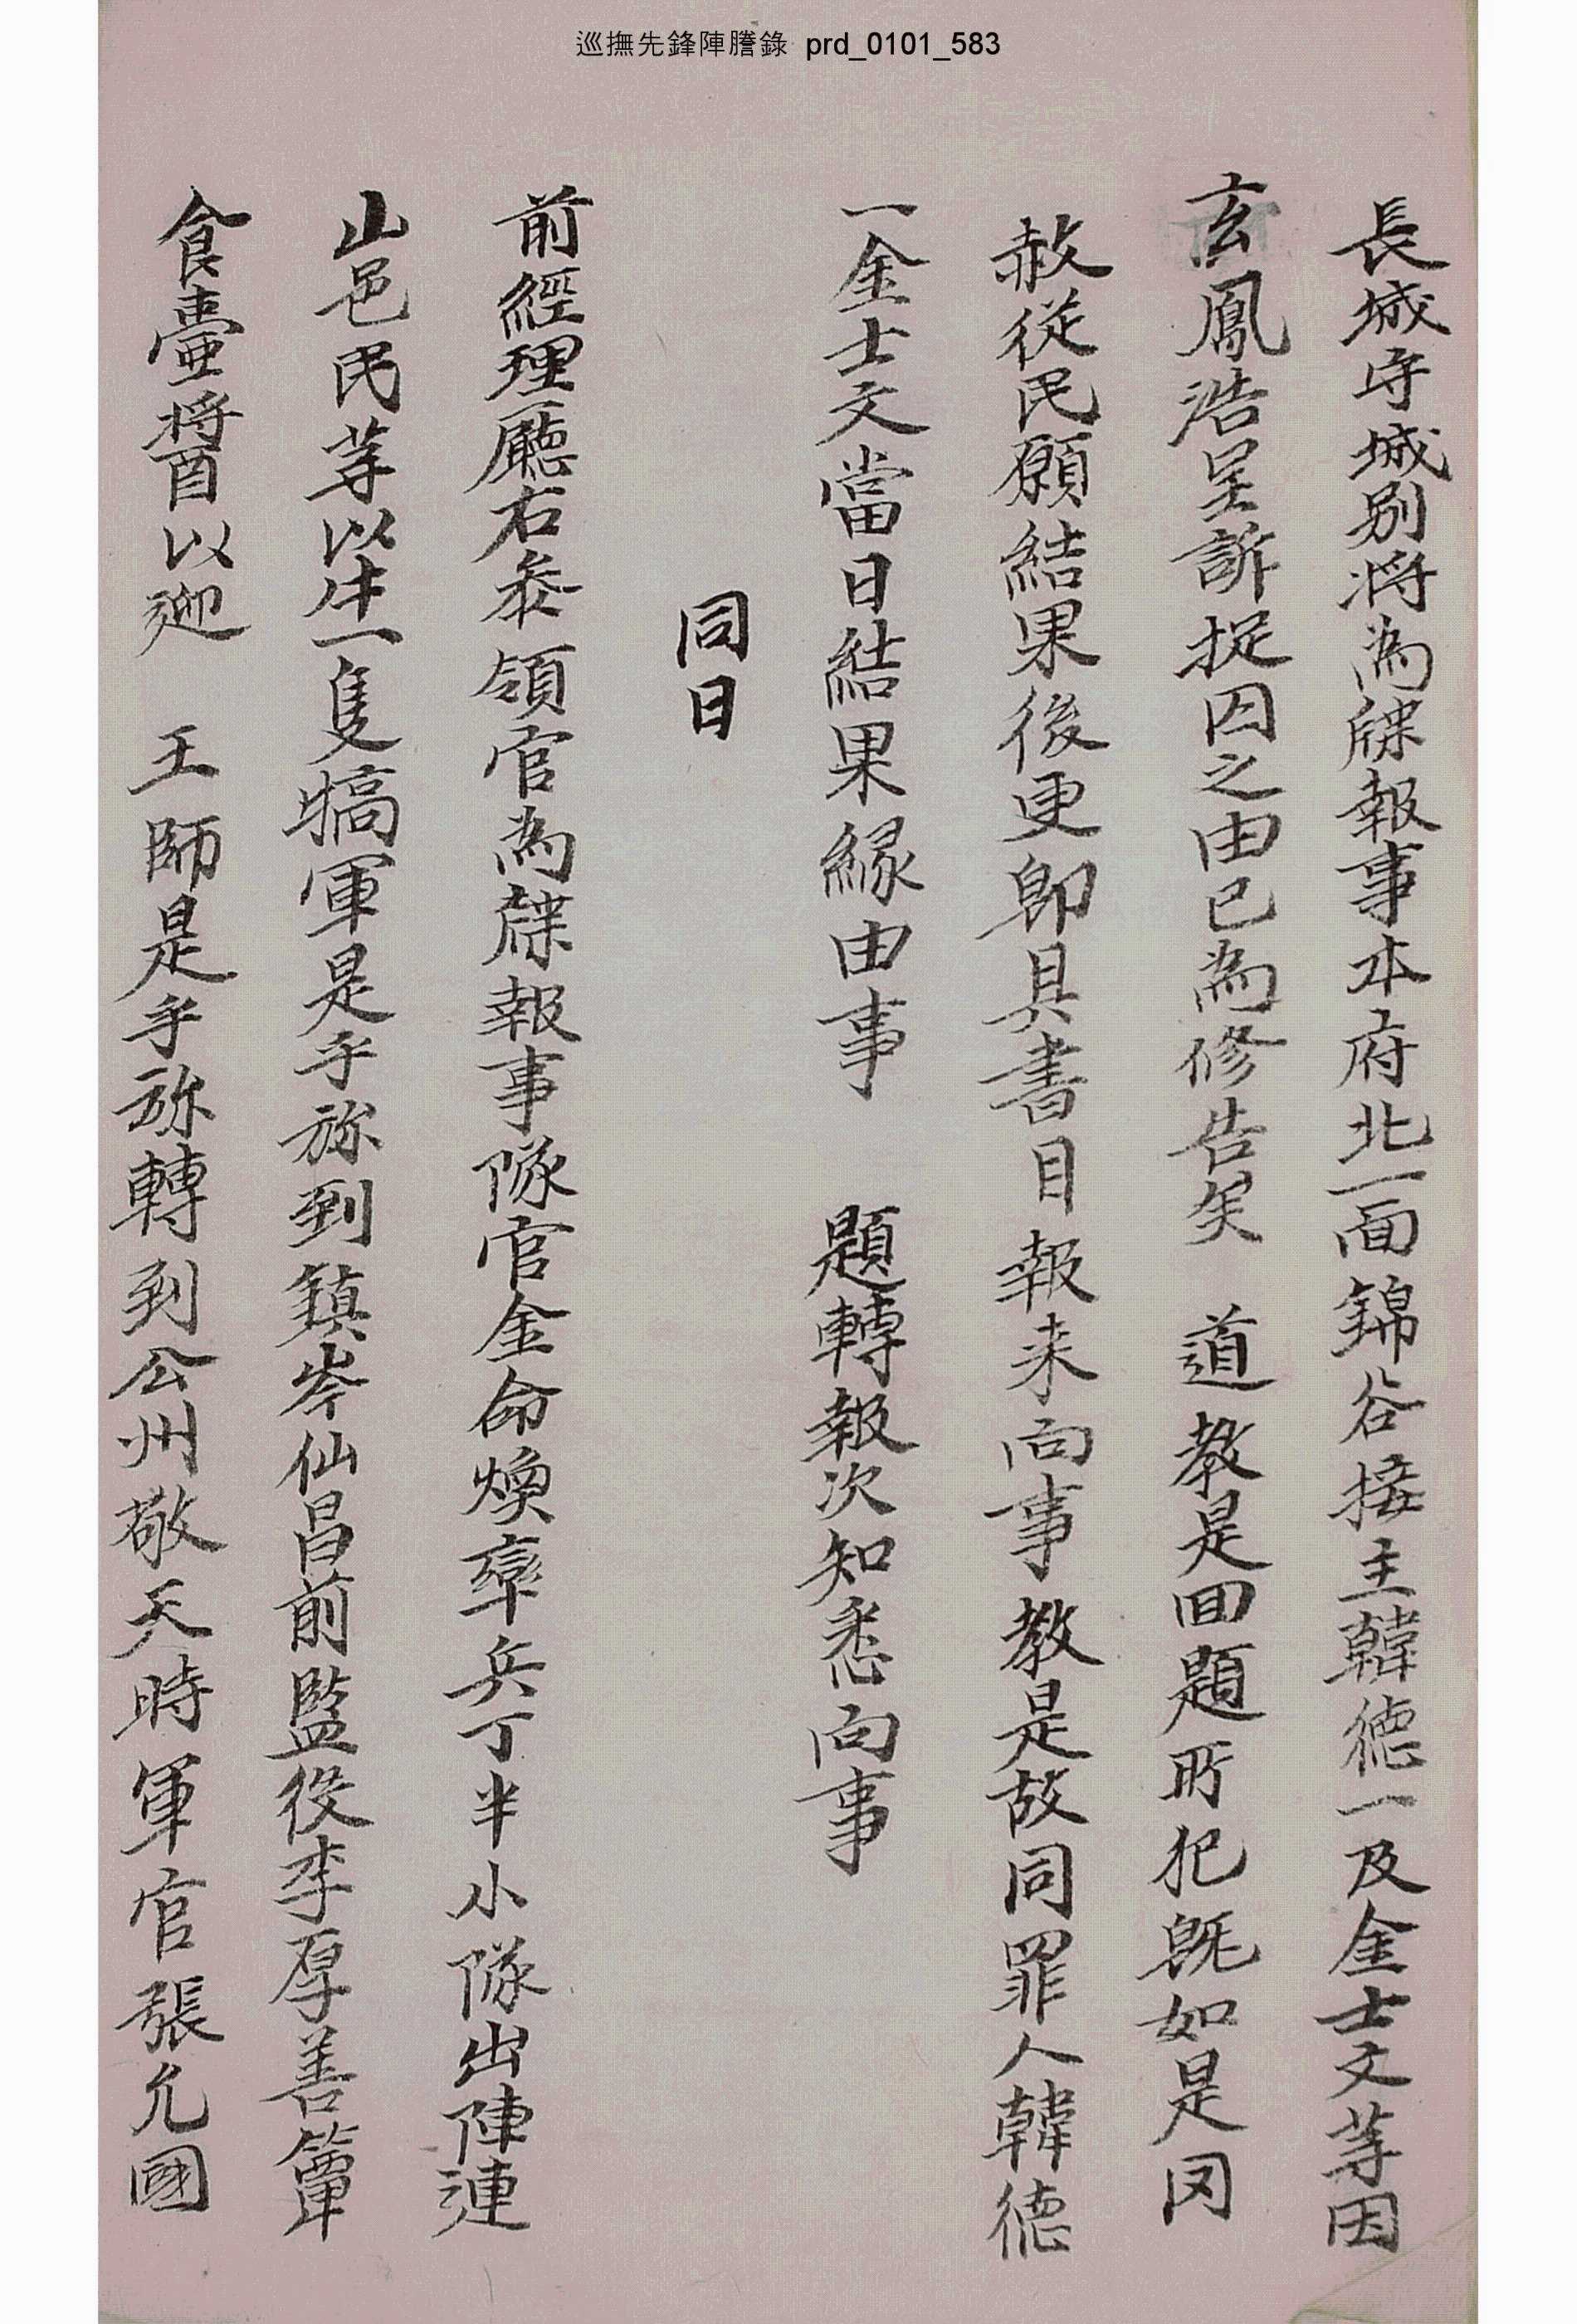 巡撫先鋒陣謄錄 prd_0101_583
長城守城別將為牒報事本府北一面錦谷接主韓德一及金士文等因
玄鳳浩呈訴捉囚之由已為修告矣 道教是回題所犯旣如是罔
赦從民願結果後更卽具書目報来向事教是故同罪人韓德
一金士文當日結果緣由事 題轉報次知悉向事
同日
前經理廳右叅領官為牒報事隊官金命煥率兵丁半小隊出陣連
山邑民等以牛一隻犒軍是乎旀到鎭岑仙昌前監役李厚善簞
食壷醬以迎 王師是乎旀轉到公州敬天時軍官張允國